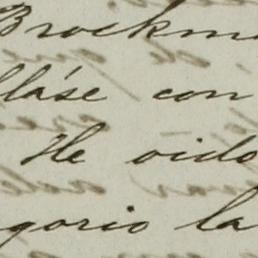 Brockm
lláse con
He oido
gorio la